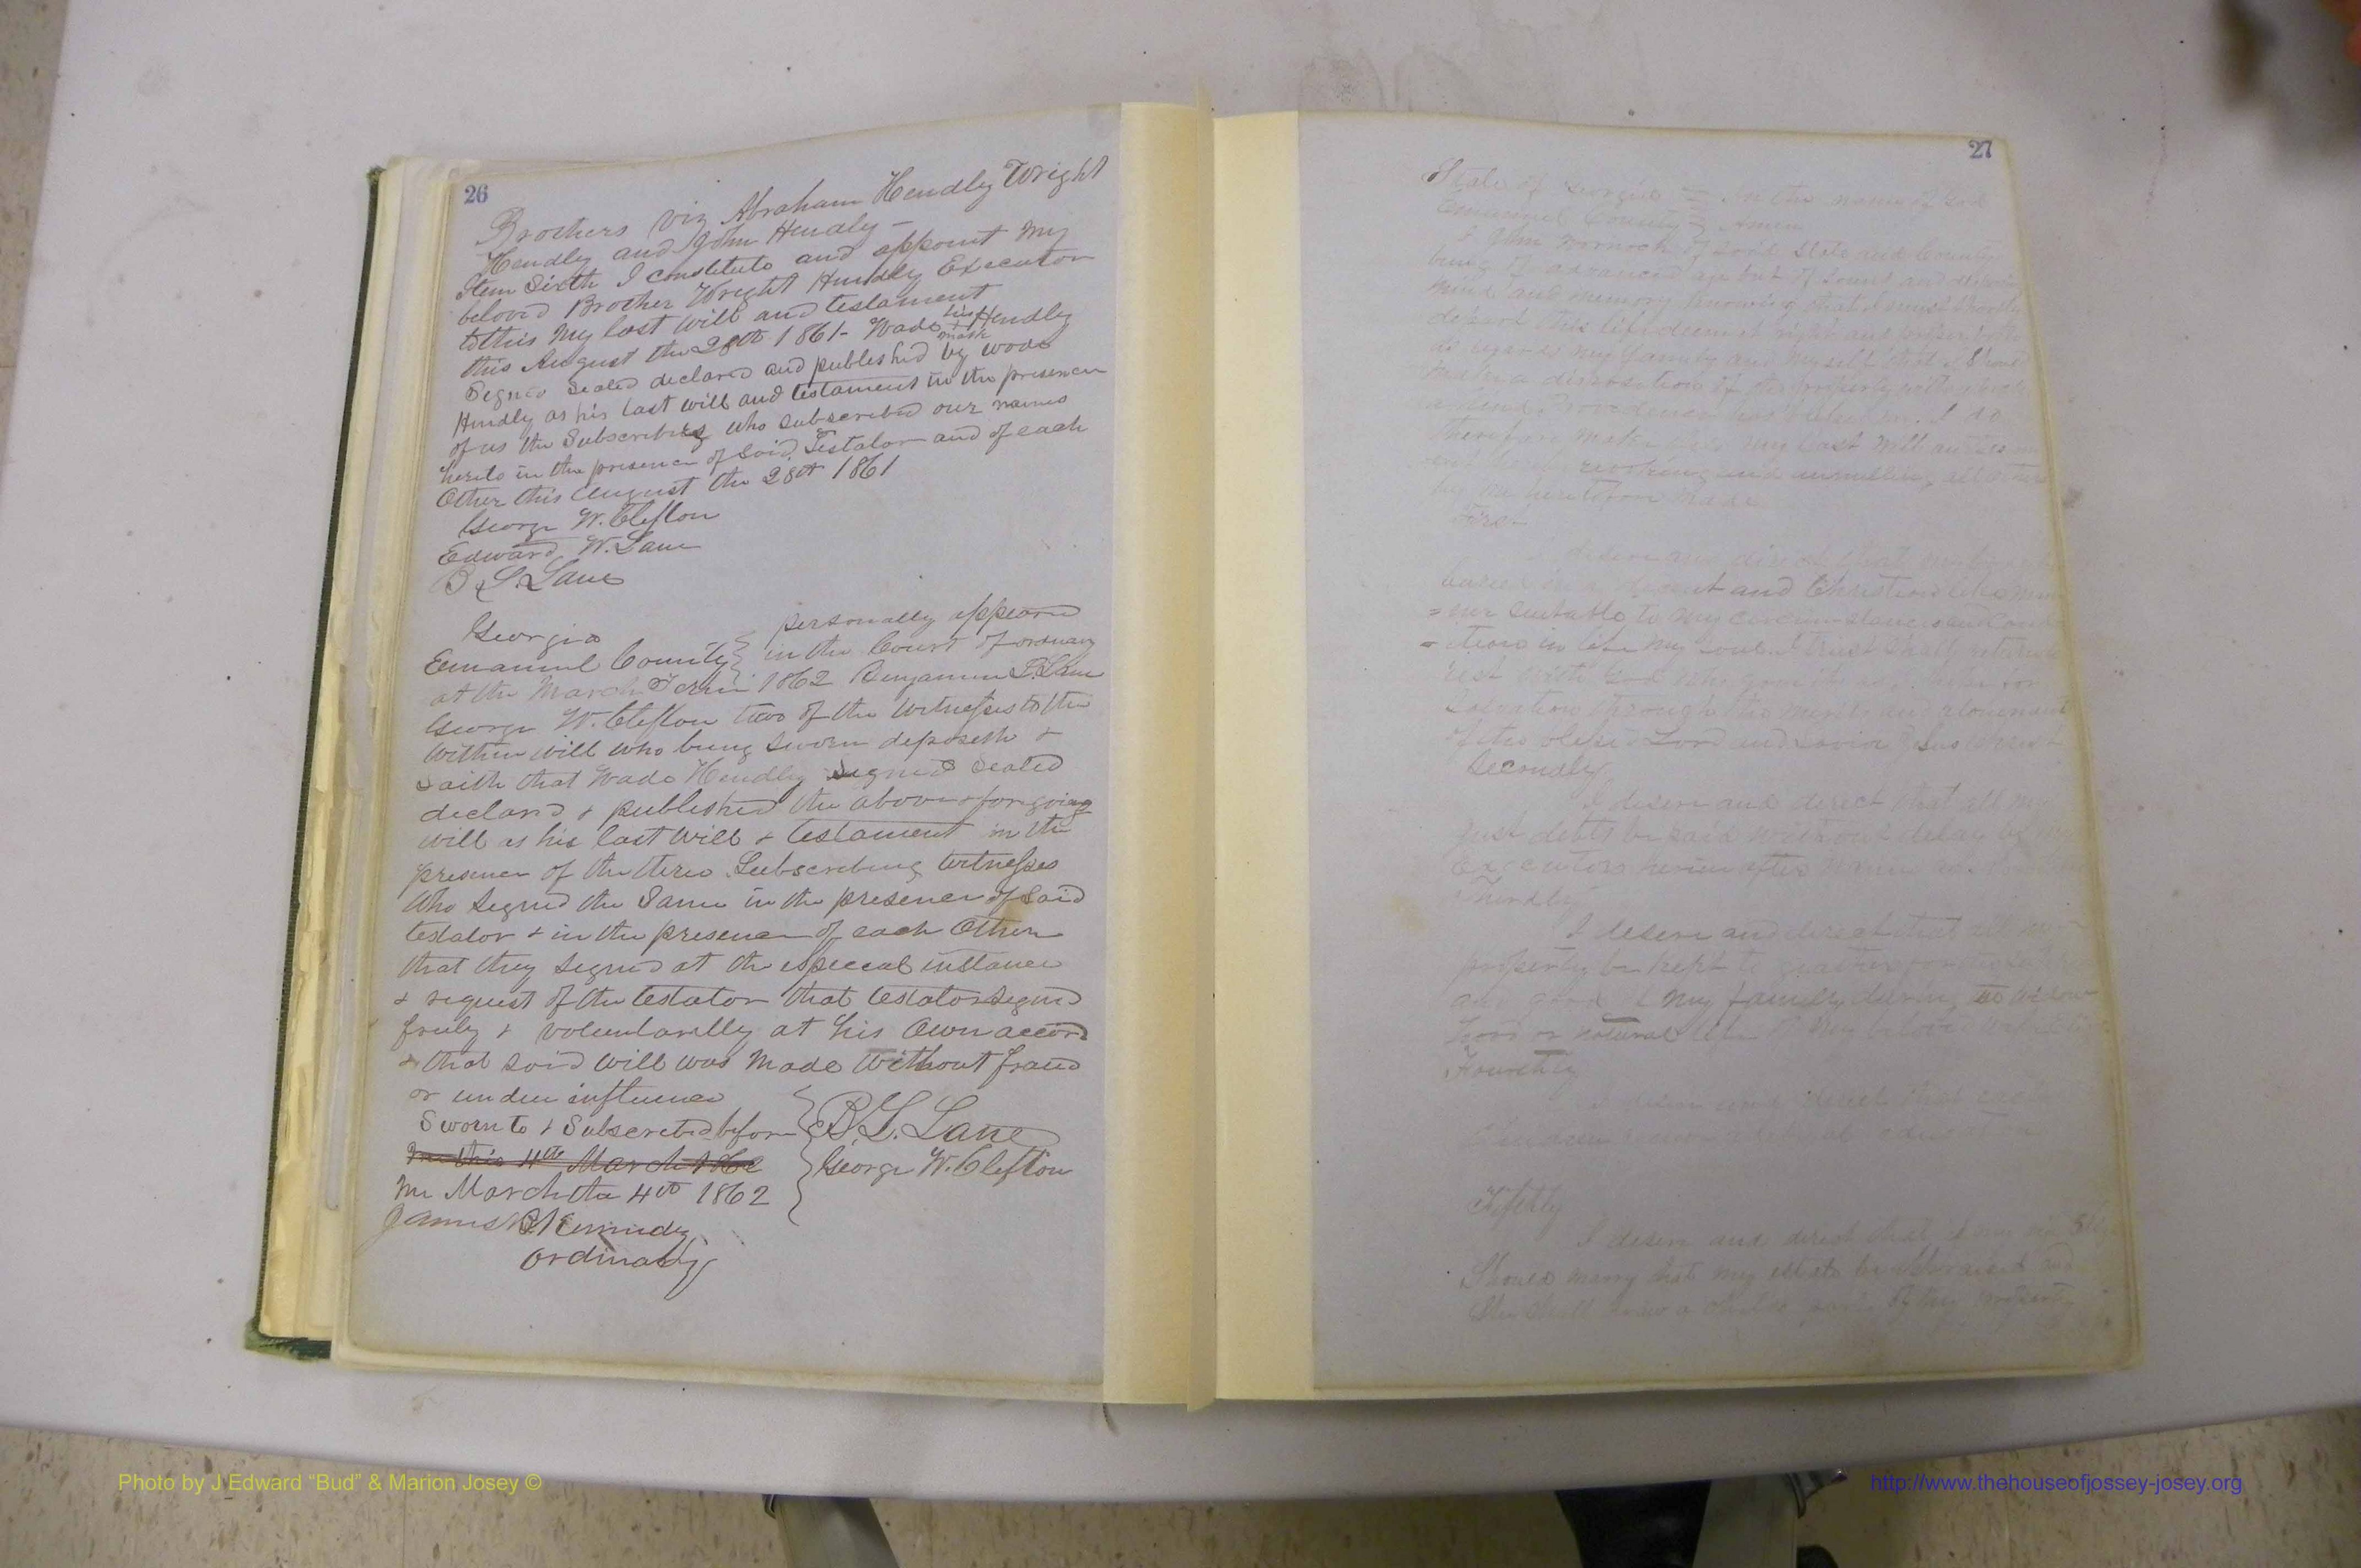 26
Brothers viz Abraham Hendley Wright
Hendly and John Hendly -
Item Sixth I constitute and appoint my
beloved Brother Wright Hendly Executor
to this my last will and testament
this August the 28th 1861 - Wade his + mark Hendly
Signed Sealed declared and published by wade
Hendly as his last will and testament in the presence
of us the Subscribers who subscribed our names
hereto in the presence of said Testator and of each
Other this August the 28th 1861
George W. Clifton
Edward W. Lane
B L. Lane
Georgia
Emanuel County
personally appeared
in the Court of ordinary
at the March Term 1862 Benjamin L. Lane
George W. Clifton two of the witnesses to the
within will who being sworn deposeth &
saith that Wade Hendley signed sealed
declared & published the above & foregoing
will as his last will & testament in the
presence of the three Subscribing witnesses
who signed the Same in the presence of said
testator & in the presence of each Other
that they signed at the especial instance
& request of the testator that testator signed
freely & voluntarilly at his Own accord
& that said will was made without fraud
or undue influence
Sworn to & Subscribed before
me this 4th March 1862
me March the 4th 1862
James B Kennedy
ordinary
B. L. Lane
George W. Clifton
27
State of Georgia In the name of God
Emanuel County Amen
I John of said State and County
being of advanced age but of sound and
mind and memory knowing that I must shortly
depart this life deem it right and proper
as regards my family and myself that I should
make a disposition of the property with which
Providence has I do
therefore make this my last will and
revoking and annulling all other
by me heretofore made
First
I desire and direct that my body be
buried in a decent and Christian like man
=ner suitable to my circumstances and condi
=tion in life my soul I trust shall return to
rest with God who gave it as I hope for
Salvation through the merits and atonement
of the blessed Lord and Savior Jesus Christ
Secondly
I desire and direct that all my
just debts be paid without delay by my
Executors herein after
Thirdly
I desire and direct that all my
property be kept together for the
and good of my family during the widow
hood or natural life of my beloved wife
Fourthly
I desire and direct that
children education
Fifthly
I desire and direct that if my wife
Should marry that my estate be appraised and
She shall draw a childs part of my property
Photo by J Edward “Bud” & Marion Josey ©
http://www.thehouseofjossey-josey.org